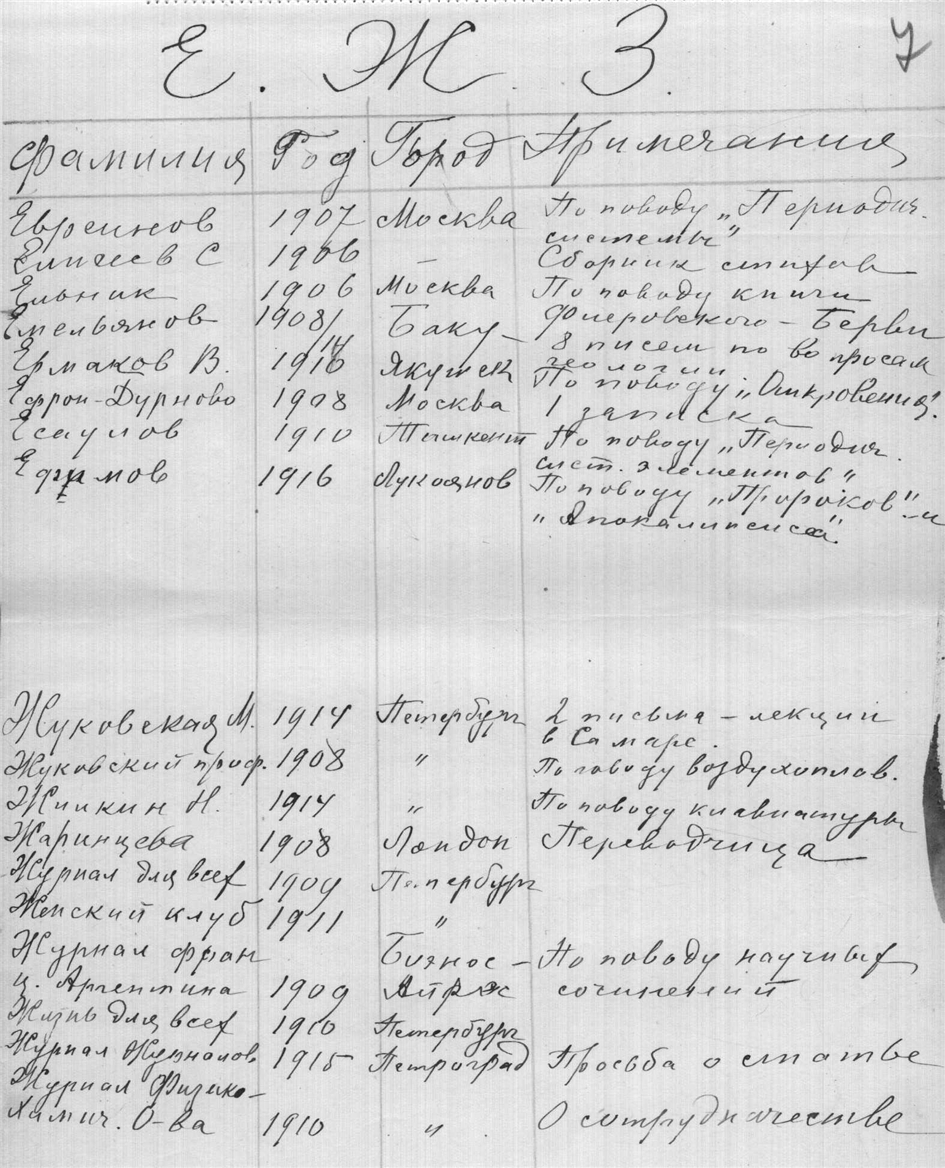 Е. Ж. З. 7
Фамилия Год Город Примечания
Евреинов 1907 Москва По поводу „Периодич.
системы"
Елпчеев С 1906 – Сборник стихов
Ельник 1906 Москва По поводу книги
Емельянов 1908/14 Баку – Флеровского – Берви
8 писем по вопросам
Ермаков В. 1916 Якутск геологии.
Ефрон-Дурново 1908 Москва По поводу „Откровения".
1 записка
Есаулов 1910 Ташкент По поводу „Периодич.
сист. элементов"
Ефимов 1916 Лукоянов По поводу „Пророков" и
„Апокалипсиса"
Жуковская М. 1914 Петербург 2 письма – лекции
в Самаре.
Жуковский проф. 1908 " По поводу воздухоплав.
Жилкин Н. 1914 " По поводу клавиатуры
Жаринцева 1908 Лондон Переводчица
Журнал для всех 1909 Петербург
Женский клуб 1911 "
Журнал фран Буэнос – По поводу научных
ц. Аргентина 1909 Айрес сочинений
Жизнь для всех 1910 Петербург
Журнал Журналов 1915 Петроград Просьба о статье
Журнал Физико-
Химич. О-ва 1910 " О сотрудничестве